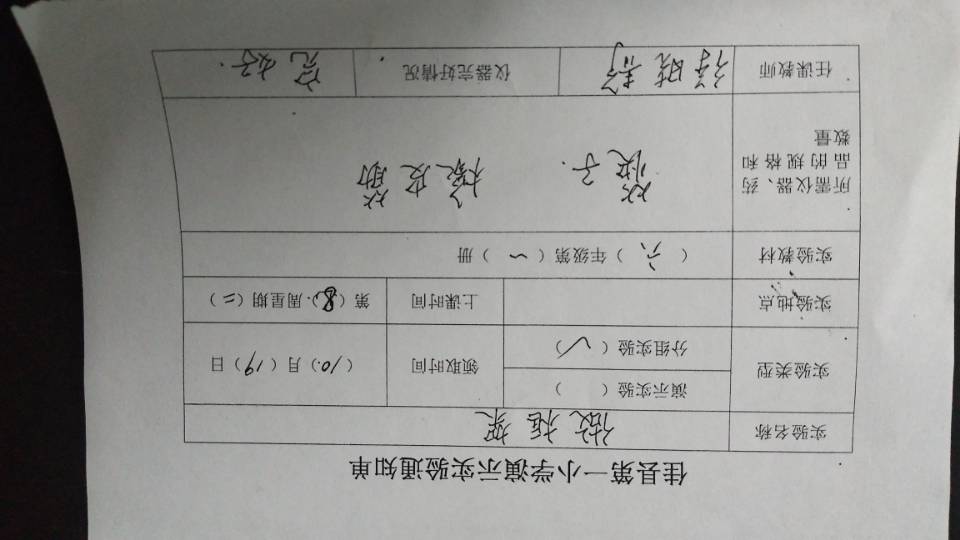 佳县第一小学演示实验通知单
实验名称 做框架
实验类型 演示实验（ ） 领取时间 （10.）月（19）日
分组实验（✓）
实验地点 上课时间 第（8）.周星期（二）
实验教材 （六）年级第（一）册
所需仪器、药
品的规格和
数量
筷子. 橡皮筋
任课教师 仪器完好情况 完好.